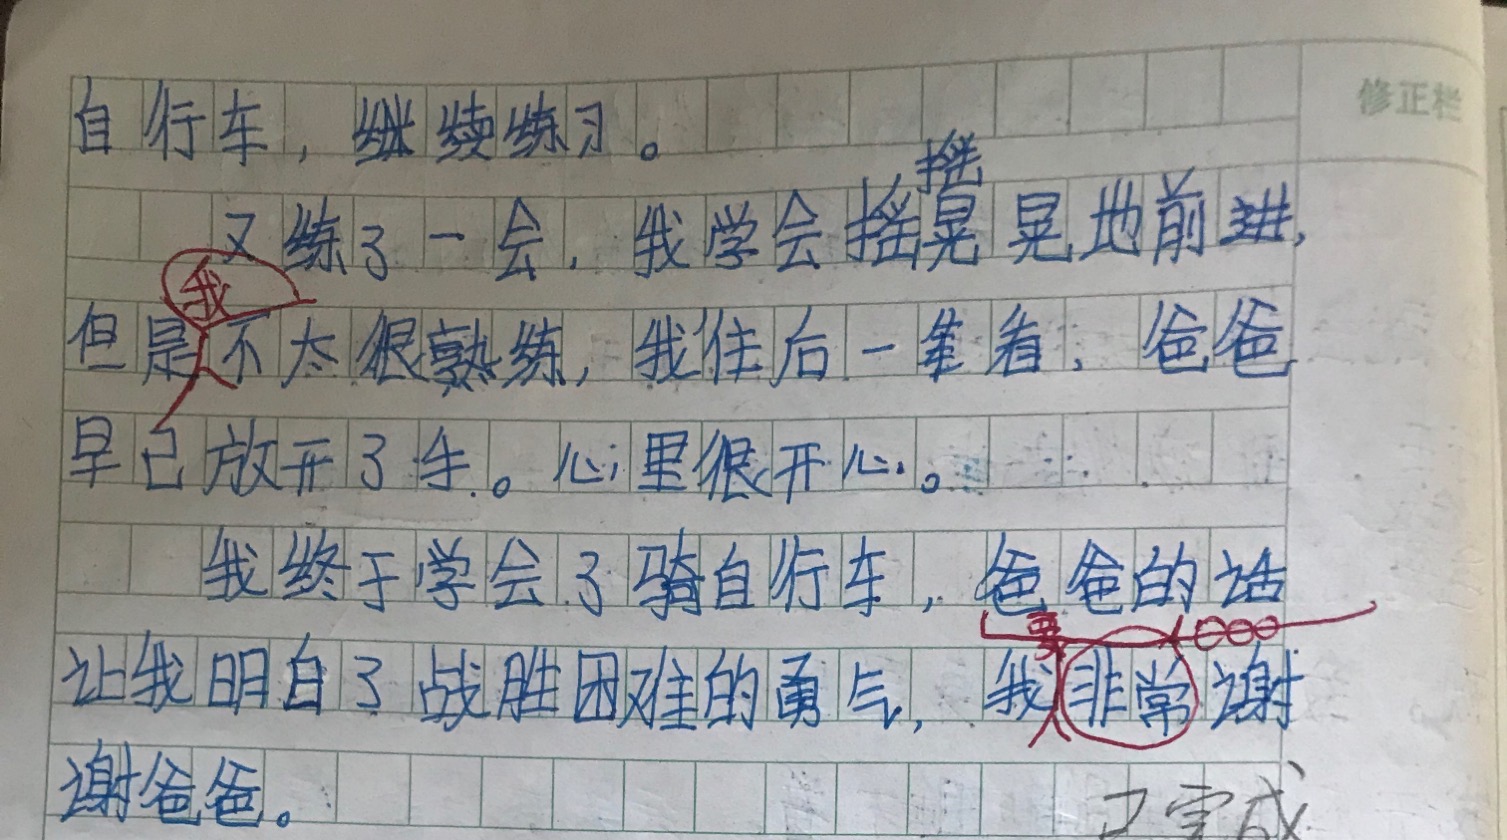 修正栏
自行车，继续练习。
摇
又练了一会，我学会摇晃晃地前进，
我
但是不太很熟练，我往后一看着，爸爸
早已放开了手。心里很开心。
我终于学会了骑自行车，爸爸的话
要
让我明白了战胜困难的勇气，我非常谢
谢爸爸。
已完成